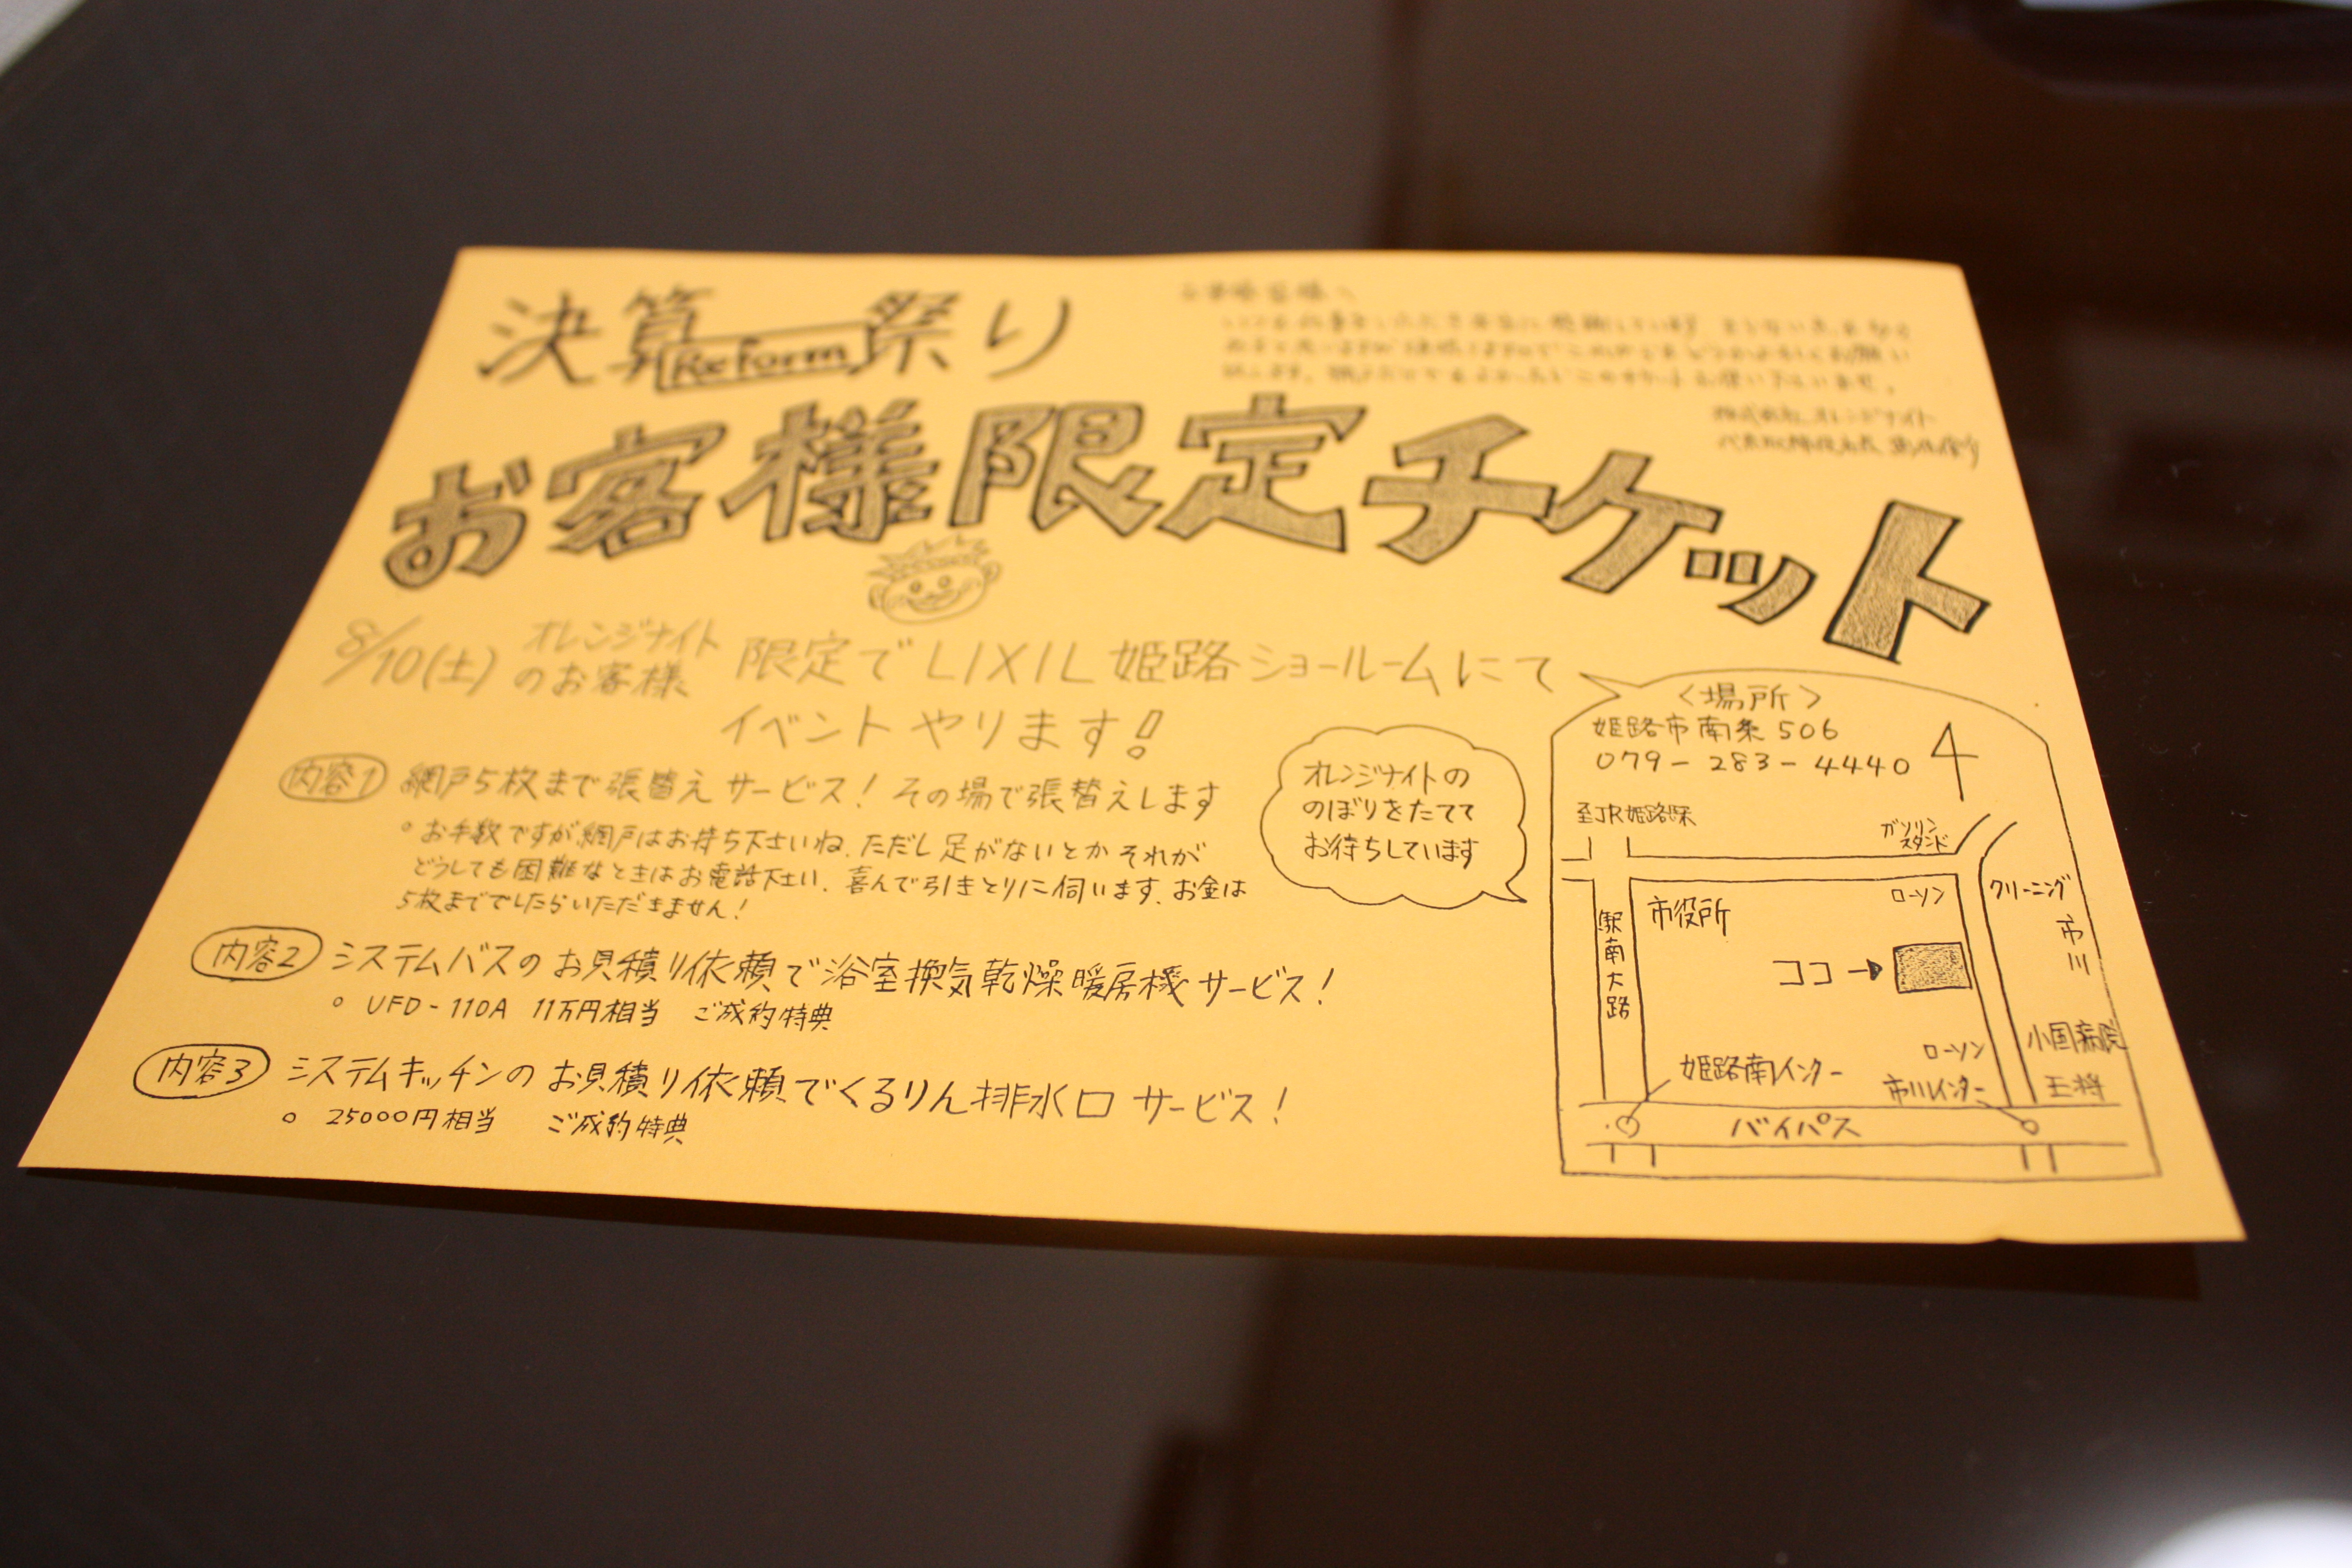 決算 Reform 祭り
お客様限定チケット
株式会社オレンジナイト
8/10(土) オレンジナイトのお客様 限定でLIXIL姫路ショールームにて
イベントやります!
内容1 網戸5枚まで張替えサービス! その場で張替えします
お手数ですが網戸はお持ち下さいね。ただし足がないとかそれが
どうしても困難なときはお電話下さい。喜んで引きとりに伺います。お金は
5枚まででしたらいただきません!
内容2 システムバスのお見積り依頼で浴室換気乾燥暖房機サービス!
UFD-110A 11万円相当 ご成約特典
内容3 システムキッチンのお見積り依頼でくるりん排水口サービス!
25000円相当 ご成約特典
オレンジナイトの
のぼりをたてて
お待ちしています
〈場所〉
姫路市南条506
079-283-4440
至JR姫路駅
ガソリン
スタンド
駅南大路
市役所
ローソン
クリーニング
市川
ココ
ローソン
小国病院
姫路南インター
市川インター
王将
バイパス